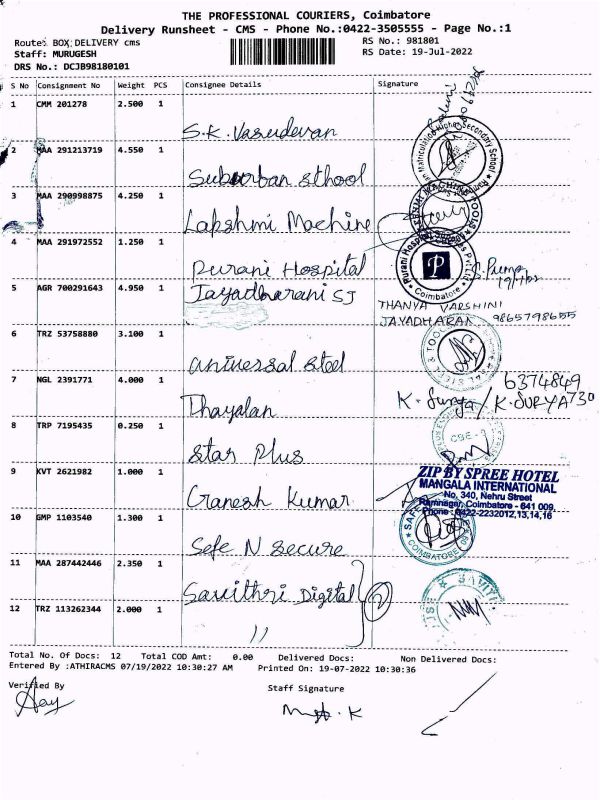 THE PROFESSIONAL COURIERS, Coimbatore
Delivery Runsheet - CMS - Phone No.:0422-3505555 - Page No.:1
Route: BOX DELIVERY cms
RS No.: 981801
Staff: MURUGESH
RS Date: 19-Jul-2022
DRS No.: DCJB98180101
S No Consignment No Weight PCS Consignee Details Signature
1 CMM 201278 2.500 1
S.K. Vasudevan
2 MAA 291213719 4.550 1
Suburban School
3 MAA 290998875 4.250 1
Lakshmi Machine
4 MAA 291972552 1.250 1
Purani Hospital
5 AGR 700291643 4.950 1 Jayadharani SJ
THANYA VARSHINI
JAYADHARAN 9865798655
6 TRZ 53758880 3.100 1
universal steel
7 NGL 2391771 4.000 1
6374849
Thayalan K. Surya/K.SURYA 730
8 TRP 7195435 0.250 1
star Plus
9 KVT 2621982 1.000 1
Ganesh Kumar
ZIP BY SPREE HOTEL
MANGALA INTERNATIONAL
No, 340, Nehru Street
Ramnagar, Coimbatore - 641 009,
Phone : 0422-2232012,13,14,16
10 GMP 1103540 1.300 1
Sefe N secure
11 MAA 287442446 2.350 1
Savithri Digital
12 TRZ 113262344 2.000 1
11
Total No. Of Docs: 12 Total COD Amt: 0.00 Delivered Docs: Non Delivered Docs:
Entered By :ATHIRACMS 07/19/2022 10:30:27 AM Printed On: 19-07-2022 10:30:36
Verified By
Staff Signature